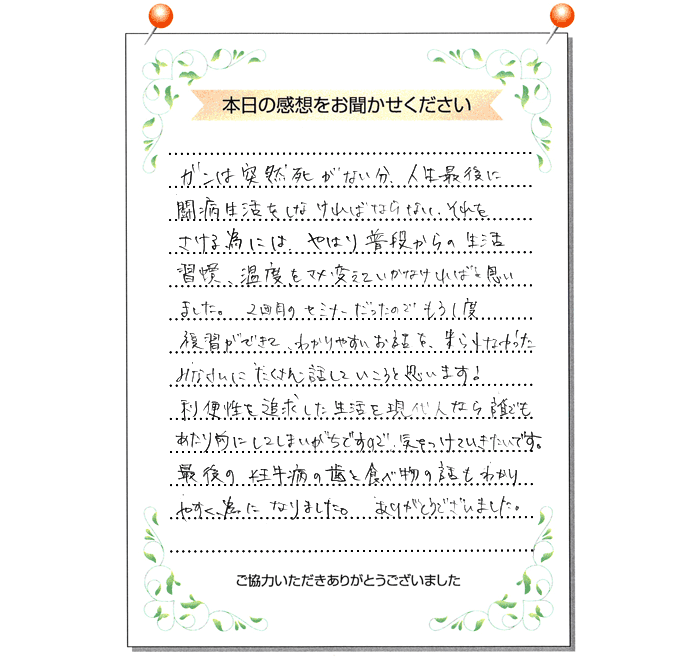 本日の感想をお聞かせください
ガンは突然死がない分、人生最後に
闘病生活をしなければならない、それを
さける為には、やはり普段からの生活
習慣、温度をマメ変えていかなければと思い
ました。2回目のセミナーだったのでもう1度
復習ができて、わかりやすいお話を、来られなかった
みなさんにたくさん話していこうと思います!
利便性を追求した生活を現代人なら誰でも
あたり前にしてしまいがちですので、気をつけていきたいです。
最後の 狂牛病の歯と食べ物の話もわかり
やすく、為になりました。 ありがとうございました。
ご協力いただきありがとうございました